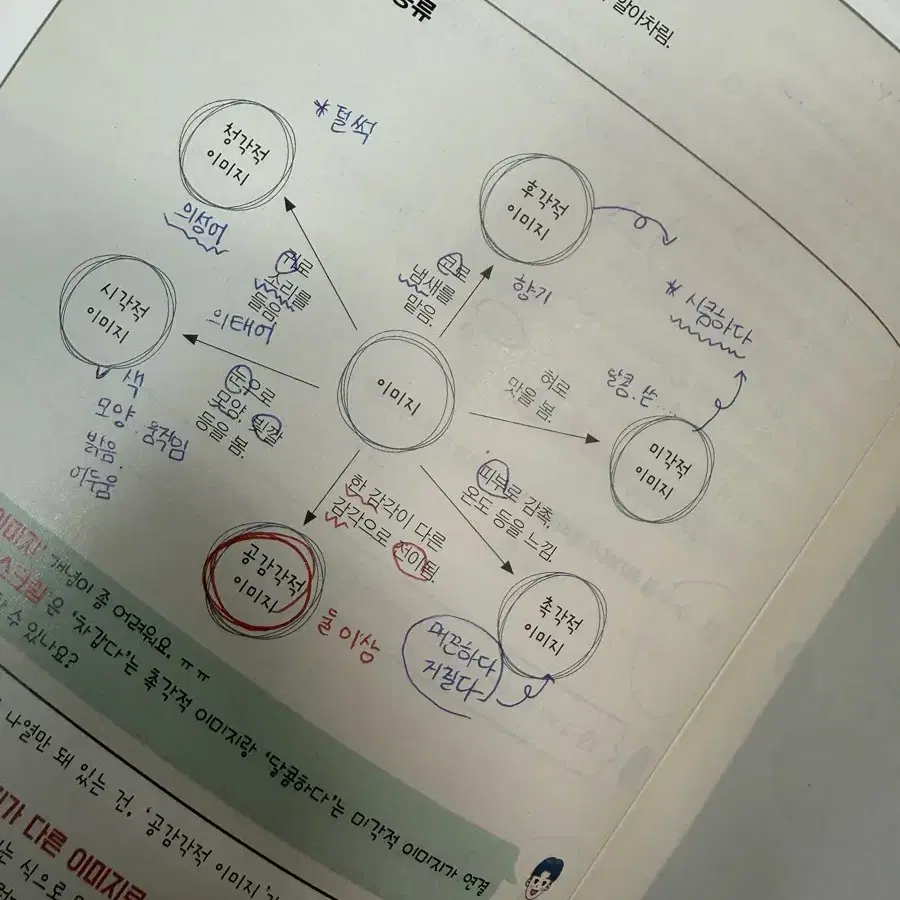 알아차림.
종류
*털썩
청각적
이미지
의성어
귀로
소리를
들음.
후각적
이미지
향기
코로
냄새를
맡음.
*시큼하다
시각적
이미지
색
모양. 움직임
밝음.
어두움
의태어
눈으로
모양, 빛깔
등을 봄.
이미지
혀로
맛을 봄.
달콤. 쓴...
미각적
이미지
피부로 감촉,
온도 등을 느낌.
촉각적
이미지
매끈하다
거칠다
한 감각이 다른
감각으로 전이됨.
공감각적
이미지
둘 이상
이미지' 개념이 좀 어려워요. ㅠㅠ
스크림'은 '차갑다'는 촉각적 이미지랑 '달콤하다'는 미각적 이미지가 연결
수 있나요?
나열만 돼 있는 건, '공감각적 이미지'
가 다른 이미지로
는 식으로